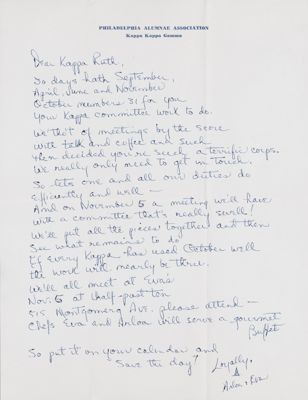 PHILADELPHIA ALUMNAE ASSOCIATION
Kappa Kappa Gamma
Dear Kappa Ruth,
30 days hath September,
April June and November
October members 31 for you
Your Kappa committee work to do.
We tho't of meetings by the score
with talk and coffee and such
Then decided you're such a terrific corps.
We really only need to get in touch.
So lets one and all our duties do
Efficiently and well —
And on November 5 a meeting we'll have
with a committee that's really swell!
We'll put all the pieces together and then
See what remains to do
If every Kappa has used October well
the work will nearly be thru.
We'll all meet at Eva's
Nov. 5 at half-past ten
515 Montgomery Ave. please attend —
Chefs Eva and Arloa will serve a gourmet
Buffet
So put it on your calendar and
"Save the day"
Loyally,
& Eva